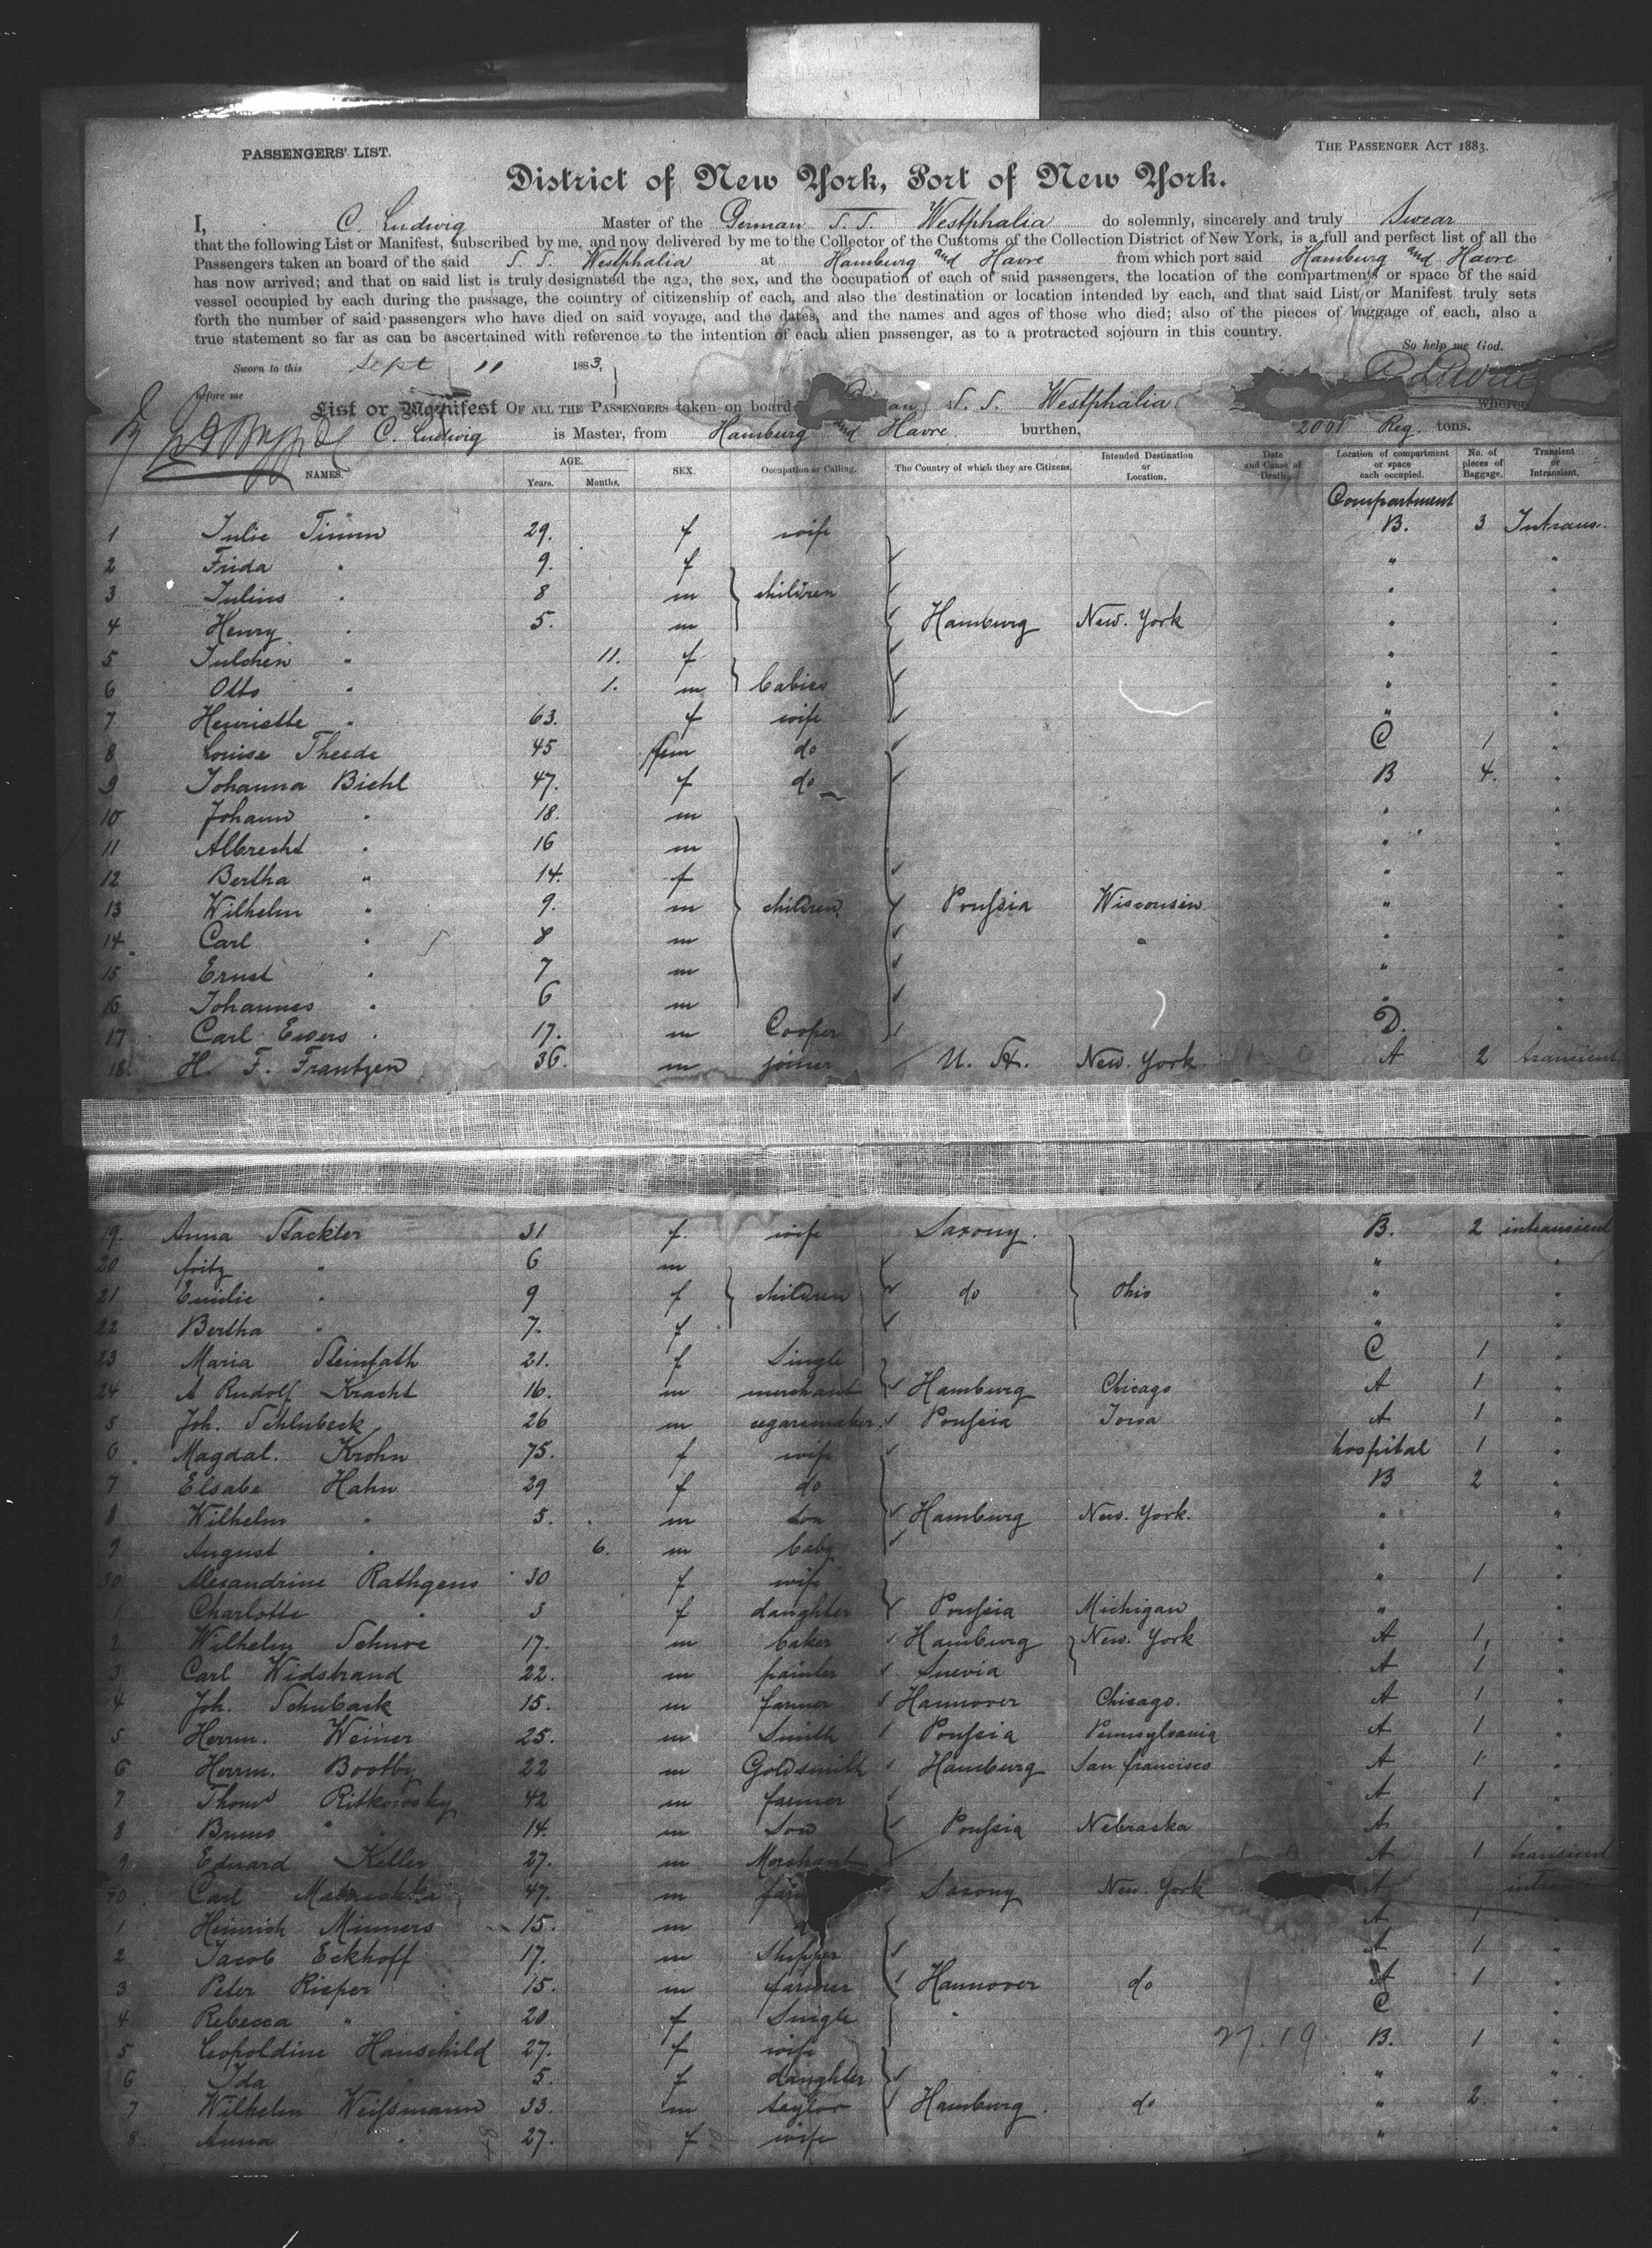 PASSENGERS' LIST.
THE PASSENGER ACT 1883.
District of New York, Port of New York.
I, C. Ludwig Master of the German S. S. Westphalia do solemnly, sincerely and truly Swear
that the following List or Manifest, subscribed by me, and now delivered by me to the Collector of the Customs of the Collection District of New York, is a full and perfect list of all the
Passengers taken on board of the said S. S. Westphalia at Hamburg and Havre from which port said Hamburg and Havre
has now arrived; and that on said list is truly designated the age, the sex, and the occupation of each of said passengers, the location of the compartments or space of the said
vessel occupied by each during the passage, the country of citizenship of each, and also the destination or location intended by each, and that said List or Manifest truly sets
forth the number of said passengers who have died on said voyage, and the dates, and the names and ages of those who died; also of the pieces of baggage of each, also a
true statement so far as can be ascertained with reference to the intention of each alien passenger, as to a protracted sojourn in this country.
So help me God.
Sworn to this Sept 11 1883,
before me
List or Manifest OF ALL THE PASSENGERS taken on board an S. S. Westphalia whereof
C. Ludwig is Master, from Hamburg and Havre burthen, 2001 Reg. tons.
NAMES. AGE. Years. Months. SEX. Occupation or Calling. The Country of which they are Citizens. Intended Destination or Location. Date and Cause of Death. Location of compartment or space each occupied. No. of pieces of Baggage. Transient or Intransient.
Compartment
1 Julie Timm 29. f wife B. 3 Intrans.
2 Frida " 9. f " "
3 Julius " 8 m children " "
4 Henry " 5. m Hamburg New. York " "
5 Julchen " 11. f " "
6 Otto " 1. m babies " "
7 Henriette " 63. f wife " "
8 Louise Theede 45 fem do C 1 "
9 Johanna Biehl 47. f do B 4. "
10 Johann " 18. m " "
11 Albrecht " 16 m " "
12 Bertha " 14. f " "
13 Wilhelm " 9. m children Prussia Wisconsin " "
14 Carl " 8 m " " "
15 Ernst " 7 m " "
16 Johannes " 6 m " "
17 Carl Ewers 17. m Cooper D. "
18. H. F. Frantzen 36. m joiner U. St. New. York A 2 transient
19. Anna Stackler 31 f. wife Saxony. B. 2 intransient
20 fritz " 6 m " "
21 Emilie " 9 f children do Ohio " "
22 Bertha " 7. f " "
23 Maria Steinfath 21. f Single C 1 "
24 A Rudolf Kracht 16. m merchant Hamburg Chicago A 1 "
5 Joh. Schlubeck 26 m cegarsmaker Prussia Iowa A 1 "
6 Magdal. Krohn 75. f wife hospital 1 "
7 Elsabe Hahn 29 f do B 2 "
8 Wilhelm " 5. m son Hamburg New. York. " "
9 August " 6. m baby " "
30 Alexandrine Rathgens 30 f wife " 1 "
1 Charlotte " 3 f daughter Prussia Michigan " "
2 Wilhelm 17. m baker Hamburg New. York A 1 "
3 Carl Widstrand 22. m painter Suevia A 1 "
4 Joh. Schuback 15. m farmer Hannover Chicago. A 1 "
5 Herm. Weiner 25. m Smith Prussia Pennsylvania A 1 "
6 Herm. Bootby 22 m Goldsmith Hamburg San francisco A 1 "
7 Thoms Ritkowsky 42 m farmer A 1 "
8 Bruno " 14. m Son Prussia Nebraska A "
9 Eduard Keller 27. m Merchant A 1 transient
40. Carl 47. m Saxony New York A
1 Heinrich Minners 15. m A 1 "
2 Jacob Eckhoff 17. m Shipper A 1 "
3 Peter Rieper 15. m farmer Hannover do A 1 "
4 Rebecca " 20 f Single C "
5 Leopoldine Hanschild 27. f wife 27. 19 B. 1 "
6 Ida " 5. f daughter " "
7 Wilhelm Weissmann 33. m taylor Hamburg. do " 2. "
8. Anna " 27. f wife " "